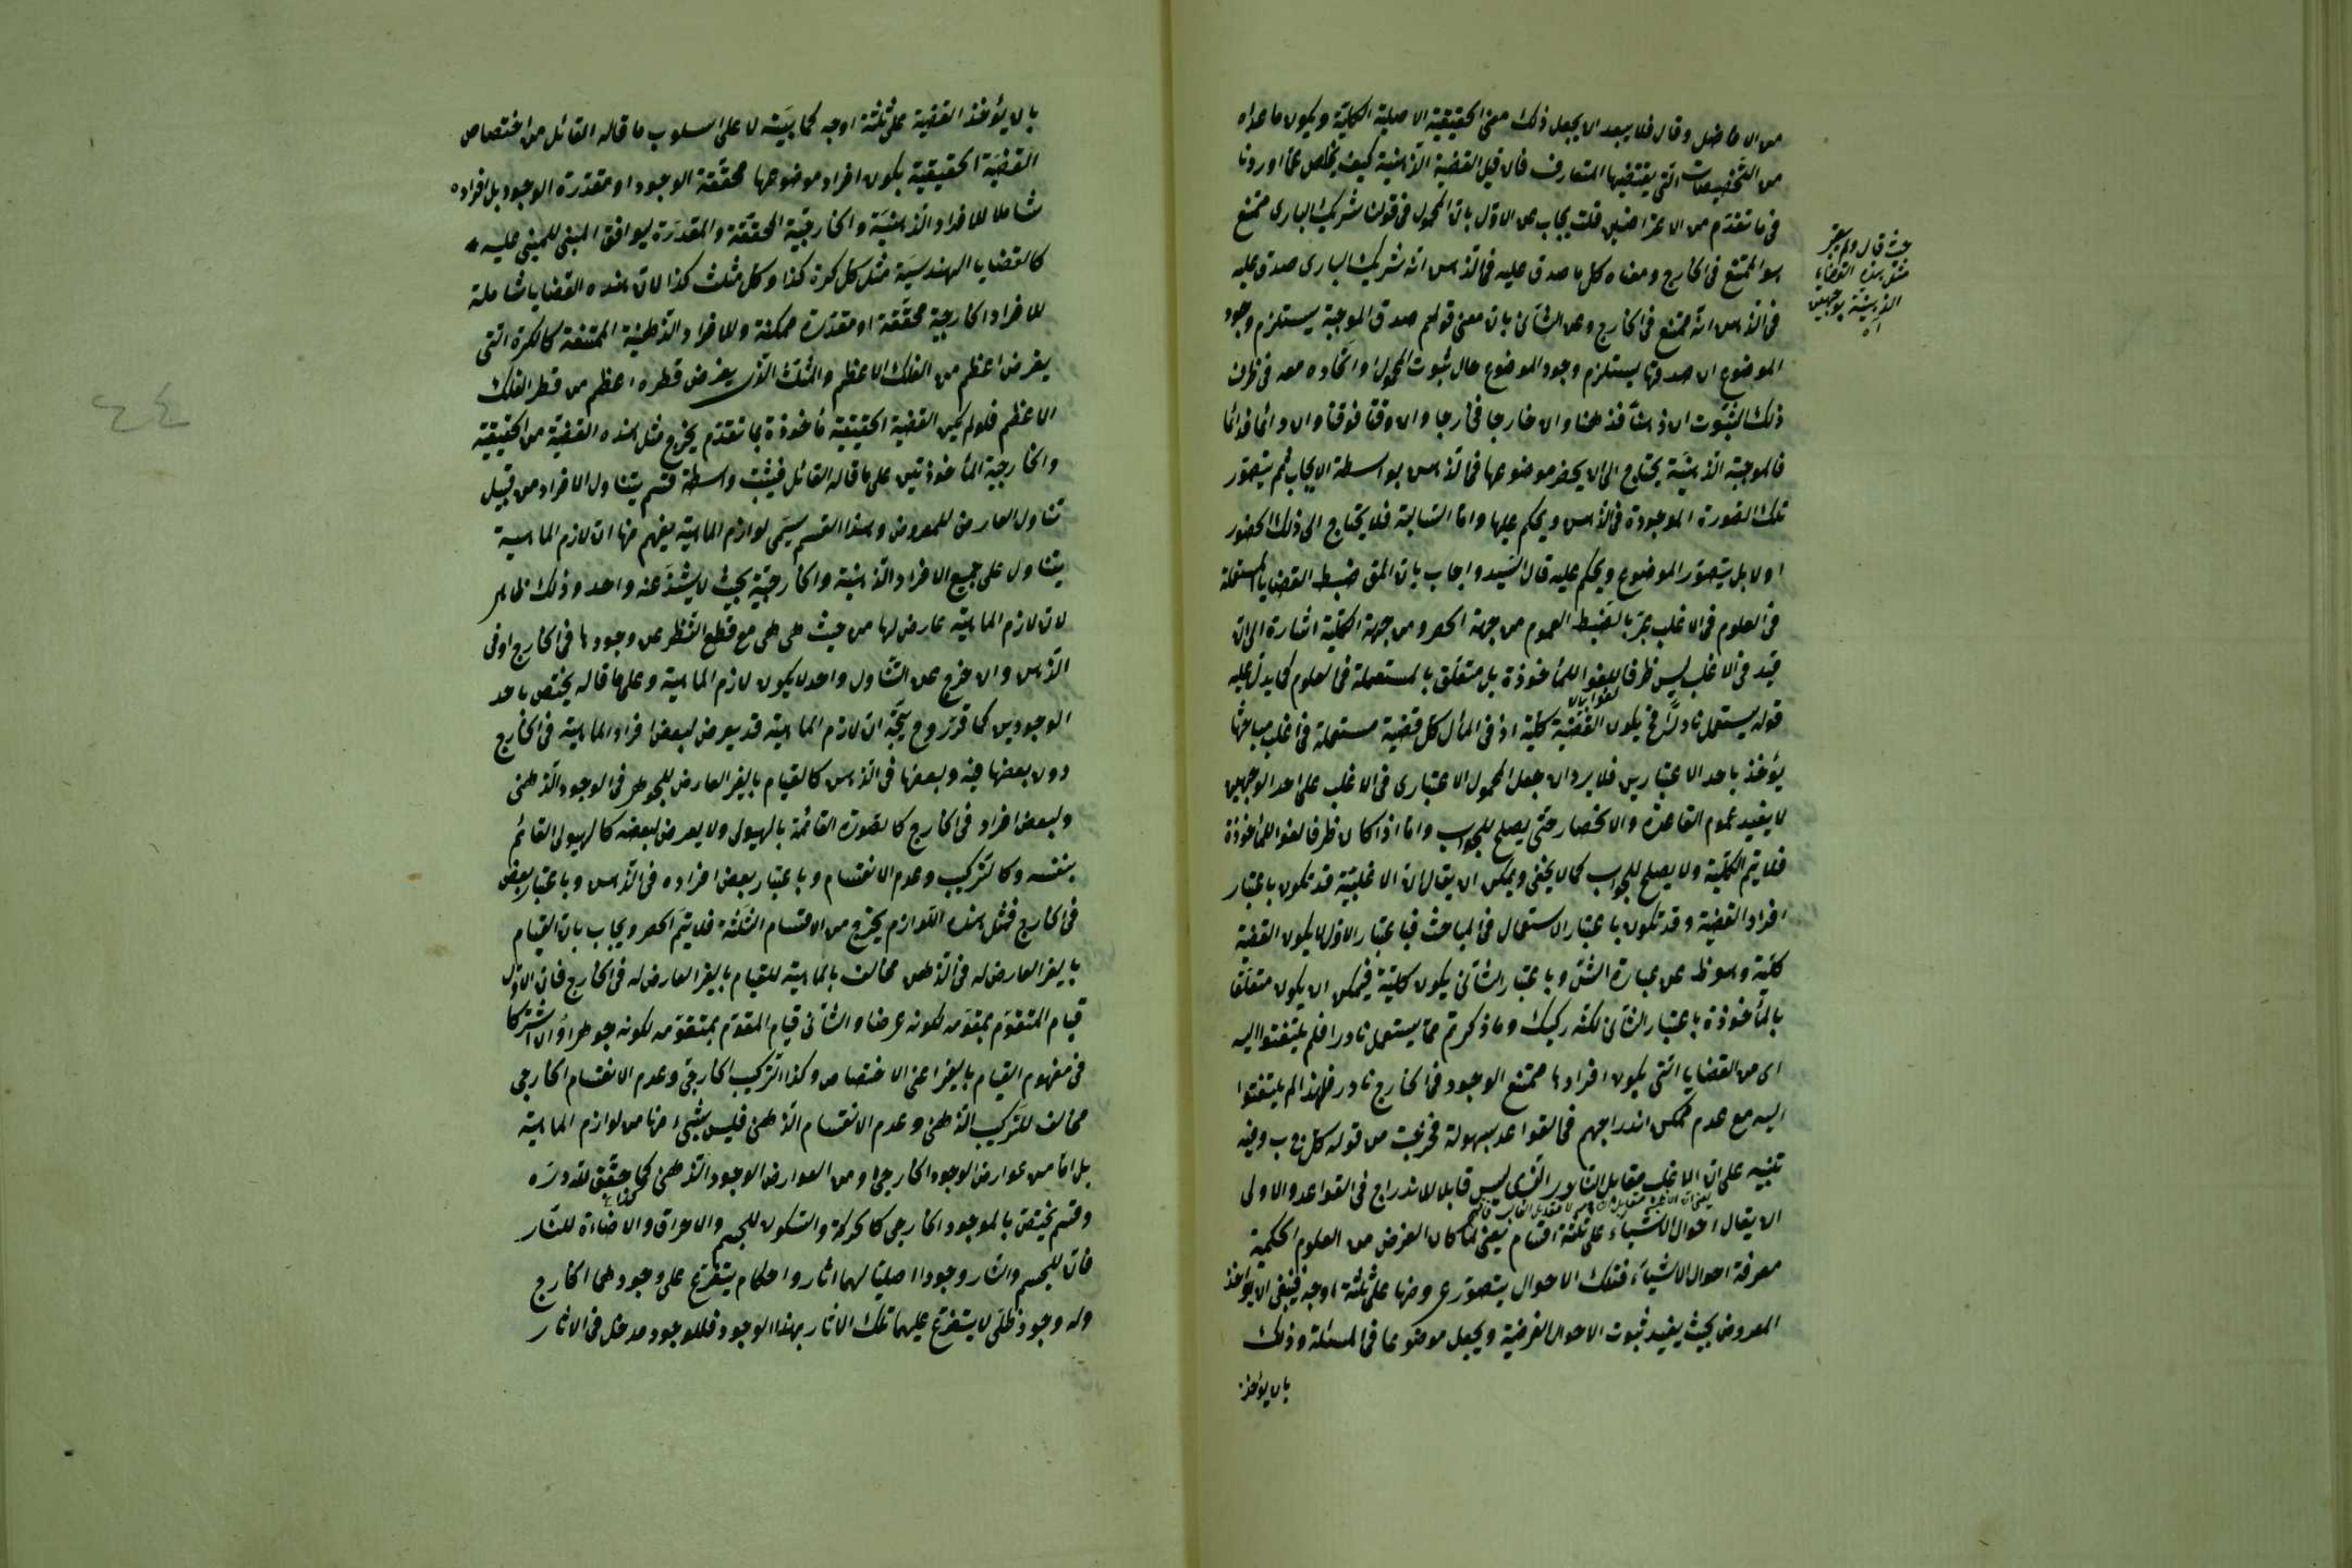 من الافاضل وقال فلا يبعد ان يجعل ذلك معنى الحقيقية الاصلية الكلية ويكون ما عداه
من التخصيصات التى يقتضيها المتعارف فان قيل القضية الذهنية كيف يخلص عما اوردنا
فى ما تقدم من الاعتراضين قلت يجاب عن الاول بان المحمول فى قولنا شريك البارى ممتنع
هو الممتنع فى الخارج ومعناه كل ما صدق عليه فى الذهن انه شريك البارى صدق عليه
فى الذهن انه ممتنع فى الخارج وعن الثانى بان معنى قولهم صدق الموجبة يستلزم وجود
الموضوع ان صدقها يستلزم وجود الموضوع حال ثبوت المحمول او اتحاده معه فى ظرف
ذلك الثبوت ان ذهنا فذهنا وان خارجا فخارجا وان وقتا فوقتا وان دائما فدائما
فالموجبة الذهنية يحتاج الى ان يحضر موضوعها فى الذهن بواسطة الايجاب ثم يتصور
تلك الصورة الموجودة فى الذهن ويحكم عليها واما السالبة فلا يحتاج الى ذلك الحضور
اولا بل يتصور الموضوع ويحكم عليه قال السيد واجاب بان المق ضبط القضايا المستعملة
فى العلوم فى الاغلب عبر بالضبط العموم من جهة الحصر ومن جهة الكلية اشارة الى ان
قيد فى الاغلب ليس ظرفا لغوا للمأخوذة بل متعلق بالمستعملة فى العلوم كما يدل عليه
قوله يستعمل نادرا فح يكون القضية كلية اذ فى المأل كل قضية مستعملة فى اغلب مباحثها
يؤخذ باحد الاعتبارين فلا يرد ان جعل المحمول الاعتبارى فى الاغلب على احد الوجهين
لا يفيد عموم القاعدة والانحصار حتى يصلح للجواب واما اذا كان ظرفا لغوا للمأخوذة
فلا يتم الكلية ولا يصلح للجواب كما لا يخفى ويمكن ان يقال ان الاغلبية قد تكون باعتبار
افراد القضية وقد تكون باعتبار الاستعمال فى المباحث فباعتبار الاول لا يكون القضية
كلية وهو ظ من عبارة الشق وباعتبار الثانى يكون كلية فيمكن ان يكون متعلقا
بالمأخوذة باعتبار الثانى لكنه ركيك وما ذكرتم مما يستعمل نادرا فلم يلتفتوا اليه
اى من القضايا التى يكون افرادها ممتنع الوجود فى الخارج نادر فلهذا لم يلتفتوا
اليه مع عدم تمكن اندراجهم فى القواعد بسهولة فخرجت من قوله كل ج ب وفيه
تنبيه على ان الاغلب مقابل النادر الذى ليس قابلا للاندراج فى القواعد والاولى
ان يقال احوال الاشياء على ثلثة اقسام يعنى لما كان الغرض من العلوم الحكمية
معرفة احوال الاشياء فتلك الاحوال يتصور عروضها على ثلثة اوجه فينبغى ان يؤخذ
المعروض بحيث يفيد ثبوت الاحوال الغرضية ويجعل موضوعا فى المسئلة وذلك
بان يؤخذ
حيث قال ولم يعتبر
مثل هذه القضايا
الذهنية بوجهين
اه
بان يؤخذ القضية على ثلثة اوجه كما بينه لا على اسلوب ما قاله القائل من اختصاص
القضية الحقيقية بكون افراد موضوعها محققة الوجود او مقدرة الوجود بل افراده
شاملا للافراد الذهنية والخارجية المحققة والمقدرة ليوافق المبنى للمبنى عليه
كالقضايا الهندسية مثل كل كرة كذا وكل مثلث كذا لان هذه القضايا شاملة
للافراد الخارجية محققة او مقدرة ممكنة وللافراد الذهنية الممتنعة كالكرة التى
يفرض اعظم من الفلك الاعظم والمثلث الذى يفرض قطره اعظم من قطر الفلك
الاعظم فلو لم يكن القضية الحقيقية مأخوذة بما تقدم يخرج مثل هذه القضية من الحقيقية
والخارجية المأخوذتين على ما قاله القائل فيثبت واسطة قسم يتناول الافراد من قبيل
تناول العارض للمعروض وهذا القسم يسمى لوازم الماهية يفهم منها ان لازم الماهية
يتناول على جميع الافراد الذهنية والخارجية بحيث لا يشذ عنه واحد وذلك ظاهر
لان لازم الماهية عارض لها من حيث هى هى مع قطع النظر عن وجودها فى الخارج او فى
الذهن وان خرج عن التناول واحد لا يكون لازم الماهية وعلى ما قاله يختص باحد
الوجودين كما قرر وح يتجه ان لازم الماهية قد يعرض لبعض افراد الماهية فى الخارج
دون بعضها فيه وبعضها فى الذهن كالقيام بالغير العارض للجوهر فى الوجود الذهنى
ولبعض افراد فى الخارج كالصورة القائمة بالهيولى ولا يعرض لبعضه كالهيولى القائم
بنفسه وكالتركيب وعدم الانقسام وباعتبار بعض افراده فى الذهن وباعتبار بعض
فى الخارج فمثل هذه اللوازم يخرج من الاقسام الثلثة فلا يتم الحصر ويجاب بان القيام
بالغير العارض له فى الذهن مخالف بالماهية للقيام بالغير العارض له فى الخارج فان الاول
قيام المتقوم بمقومه لكونه عرضا والثانى قيام المقوم بمتقومه لكونه جوهرا وان اشتركا
فى مفهوم القيام بالغير اعنى الاختصاص وكذا التركيب الخارجى وعدم الانقسام الخارجى
مخالف للتركيب الذهنى وعدم الانقسام الذهنى فليس شيئ منها من لوازم الماهية
بل اما من عوارض الوجود الخارجى او من العوارض الوجود الذهنى كما حقق لله دره
وقسم يختص بالموجود الخارجى كالحركة والسكون للجسم والاحراق والاضاءة للنار
فان للجسم والنار وجودا اصليا لهما اثار واحكام يتفرع على وجودهما الخارج
وله وجود ظلى لا يتفرع عليهما تلك الاثار بهذا الوجود فللوجود مدخل فى الاثار
٤٤